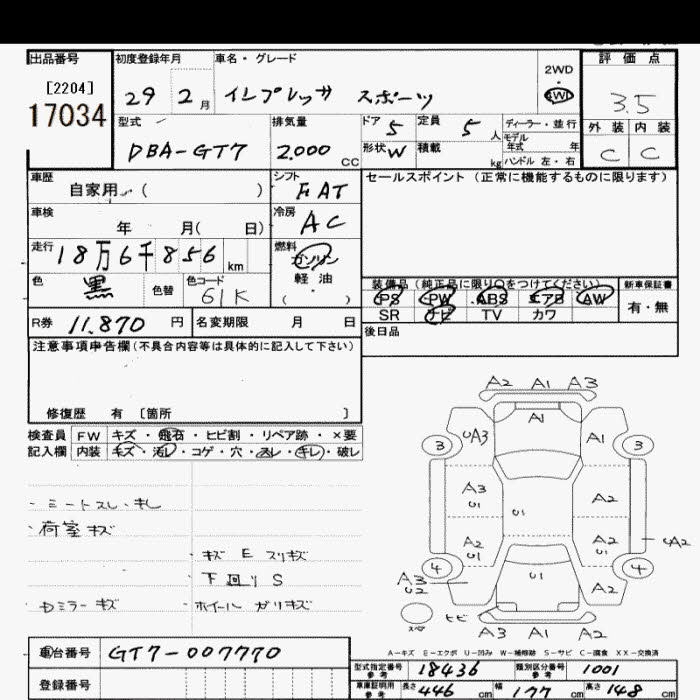 出品番号 初度登録年月 車名・グレード 2WD 評価点
[2204]
17034 29 2月 インプレッサ スポーツ 4WD 3.5
型式 排気量 ドア 5 定員 5人 ディーラー・並行 外装 内装
モデル年式 年
DBA-GT7 2.000 CC 形状 W 積載 kg ハンドル 左・右 C C
車歴 自家用 ( ) シフト FAT セールスポイント (正常に機能するものに限ります)
車検 年 月( 日) 冷房 AC
走行 18万6千856 km 燃料 ガソリン
色 黒 色替 色コード 61K 軽油
( ・ )
装備品 (純正品に限り○をつけてください) 新車保証書
PS PW ABS エアB AW 有・無
SR ナビ TV カワ
R券 11.870 円 名変期限 月 日 後日品
注意事項申告欄 (不具合内容等は具体的に記入して下さい)
修復歴 有 [箇所 ]
検査員 FW キズ・飛石・ヒビ割・リペア跡・×要
記入欄 内装 キズ・汚レ・コゲ・穴・スレ・キレ・破レ
A2 A1 A3
A1
UA3 A1
3 3
A3 U1 U1 A2
A2 U1 A2 U1 UA2
4 U1 4
A3 U2 A2
・シートスレ・キレ
・荷室キズ
・キズ E スリキズ
・下回り S
・Dミラーキズ ・ホイール ガリキズ
ヒビ
A3 A1 A2
A-キズ E-エクボ U-凹み W-補修跡 S-サビ C-腐食 XX-交換済
車台番号 GT7-007770
型式指定番号 参考 18436 類別区分番号 参考 1001
登録番号 車庫証明用 参考 長さ 446 cm 幅 177 cm 高さ 148 cm